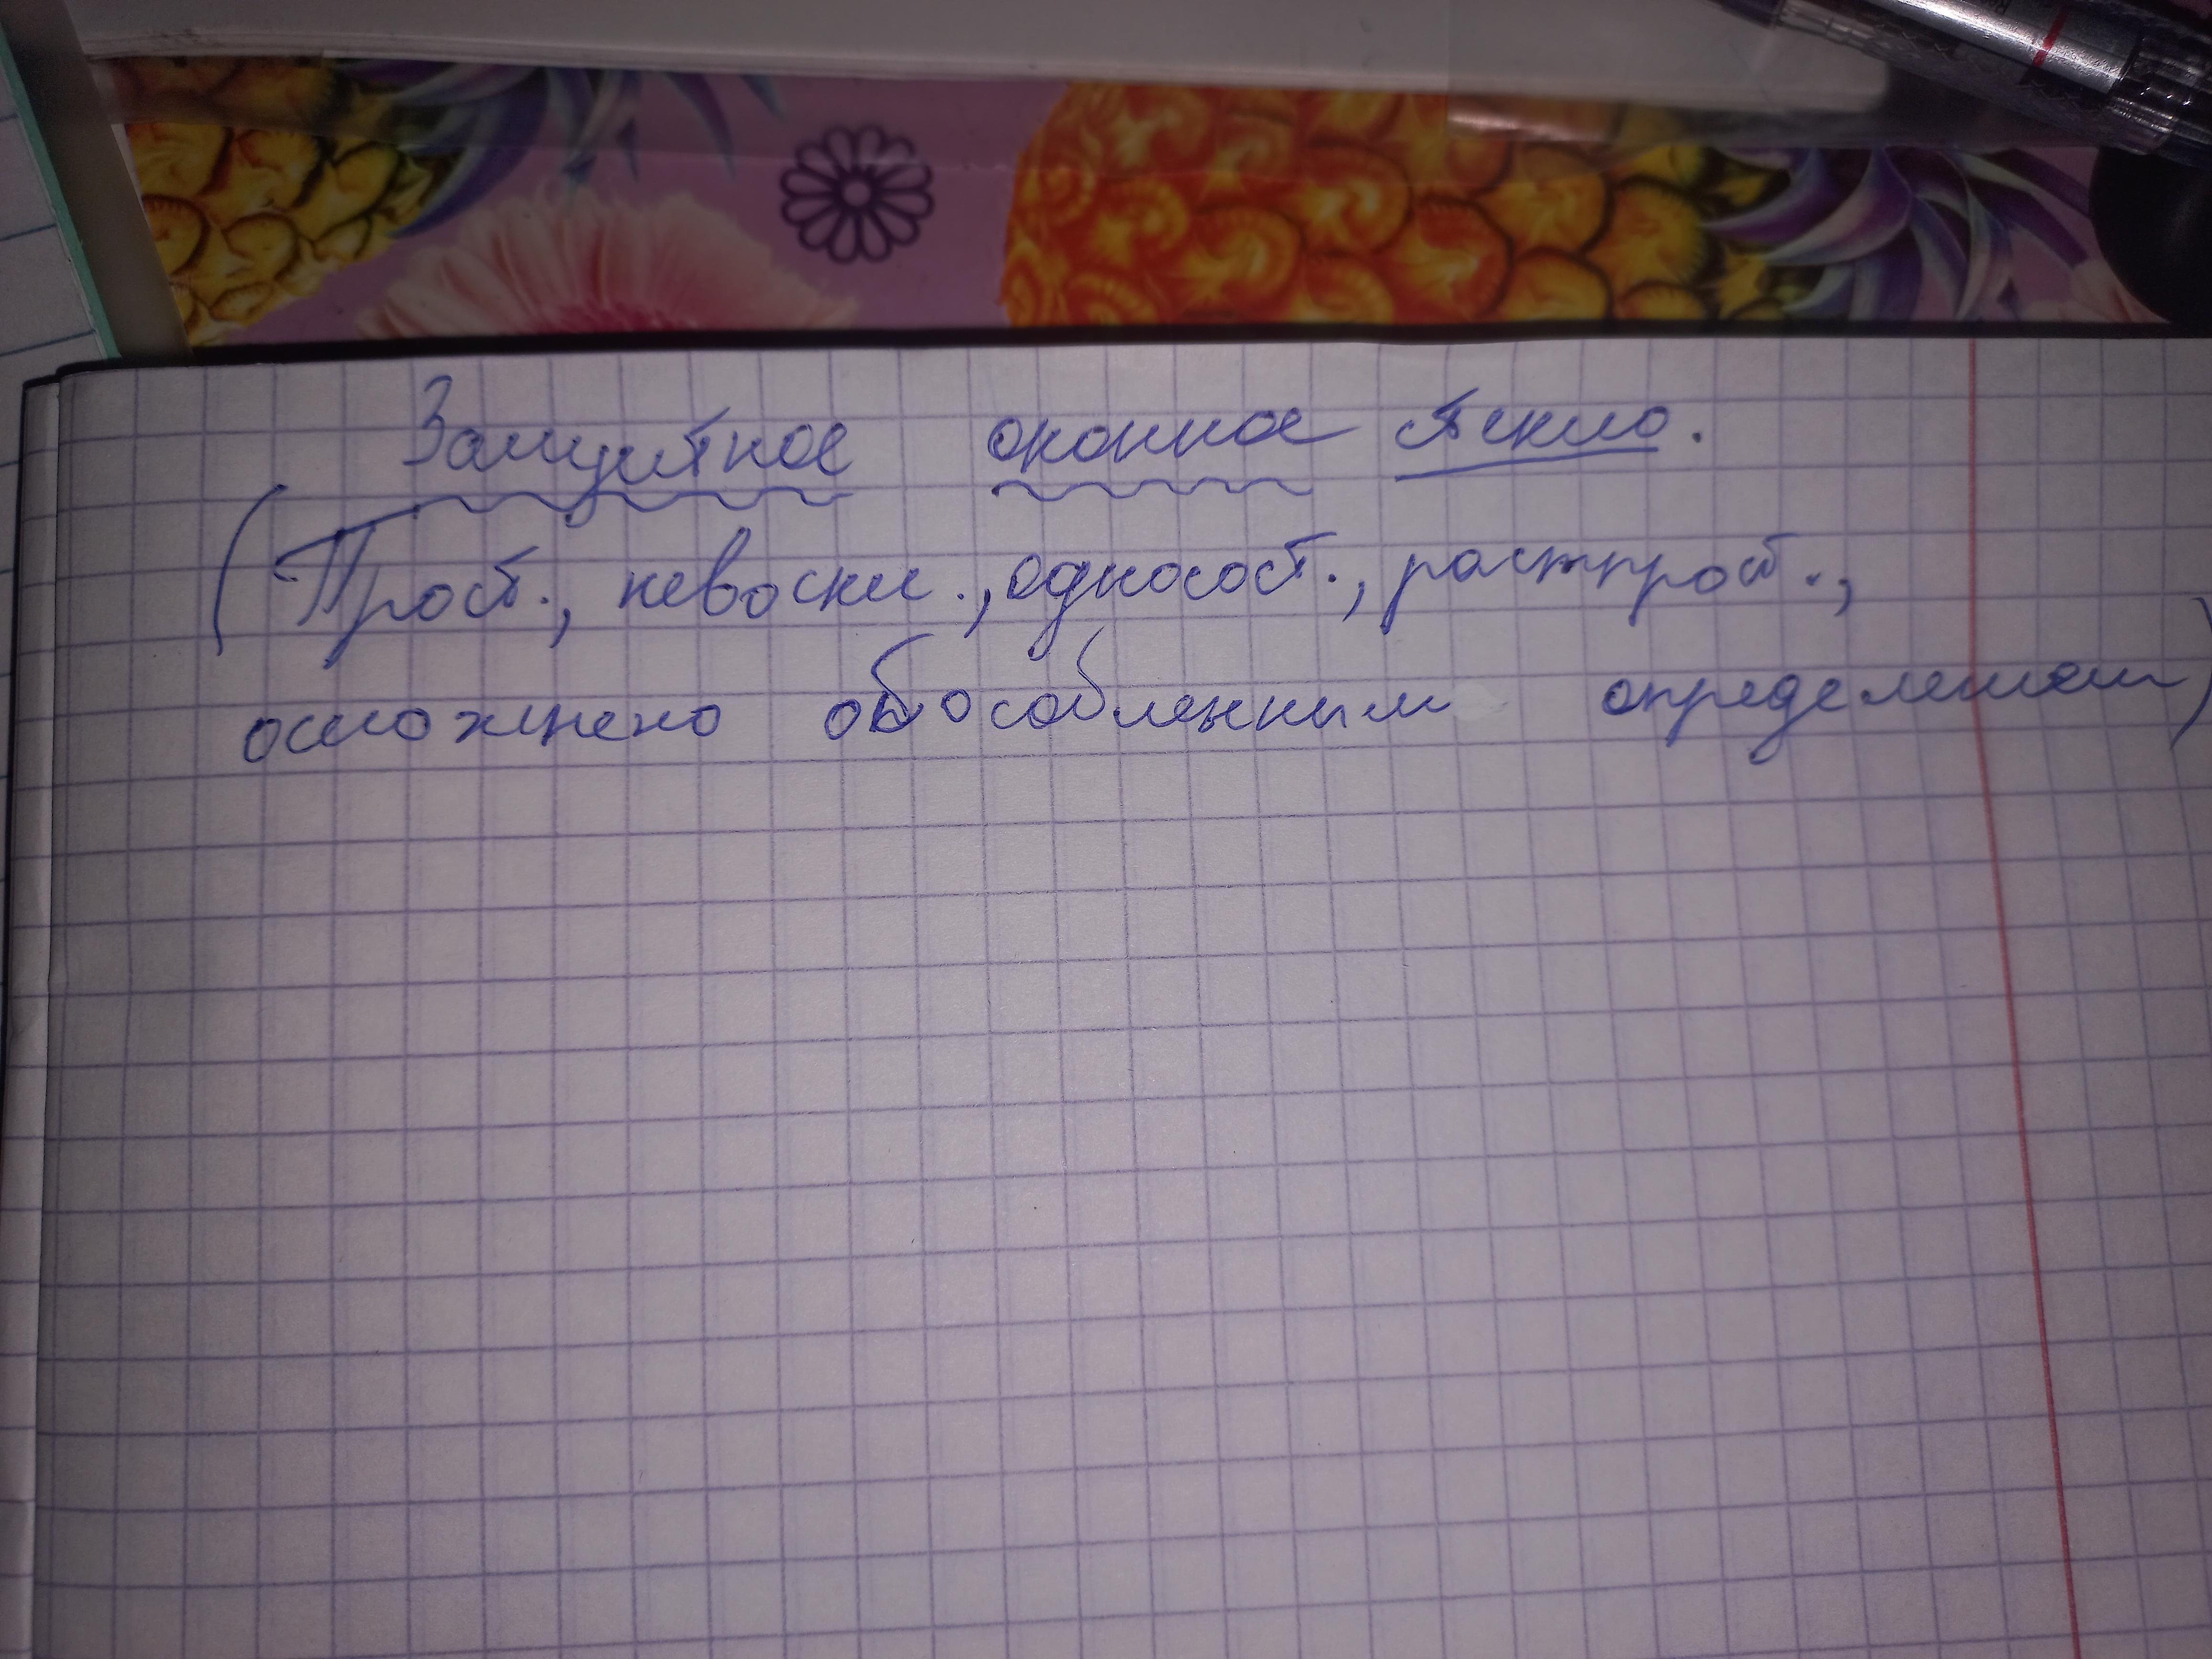 Защитное оконное стекло.
(Прост., невоскл., односост., распрост.,
осложнено обособленным определением)